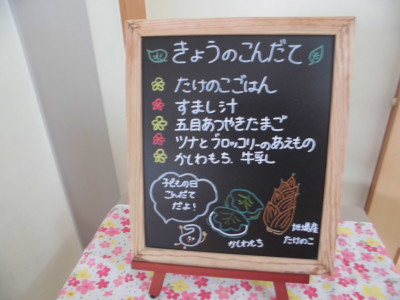 きょうのこんだて
たけのこごはん
すまし汁
五目あつやきたまご
ツナとブロッコリーのあえもの
かしわもち、牛乳
子どもの日
こんだて
だよ!
かしわもち
地場産
たけのこ